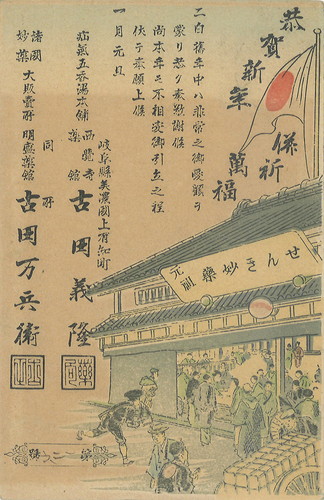 恭賀新年
併祈
萬福
二白舊年中ハ非常之御愛顧ヲ
蒙り難有奉敬謝候
尚本年モ不相変御引立之程
伏テ奉願上候
一月元旦
岐阜縣美濃國上有知町
疝氣五香湯本舗
西覺寺
藥館
古田義隆
諸國
妙藥
大販賣所
明盛藥館
同所
古田万兵衛
せんき妙藥
元祖